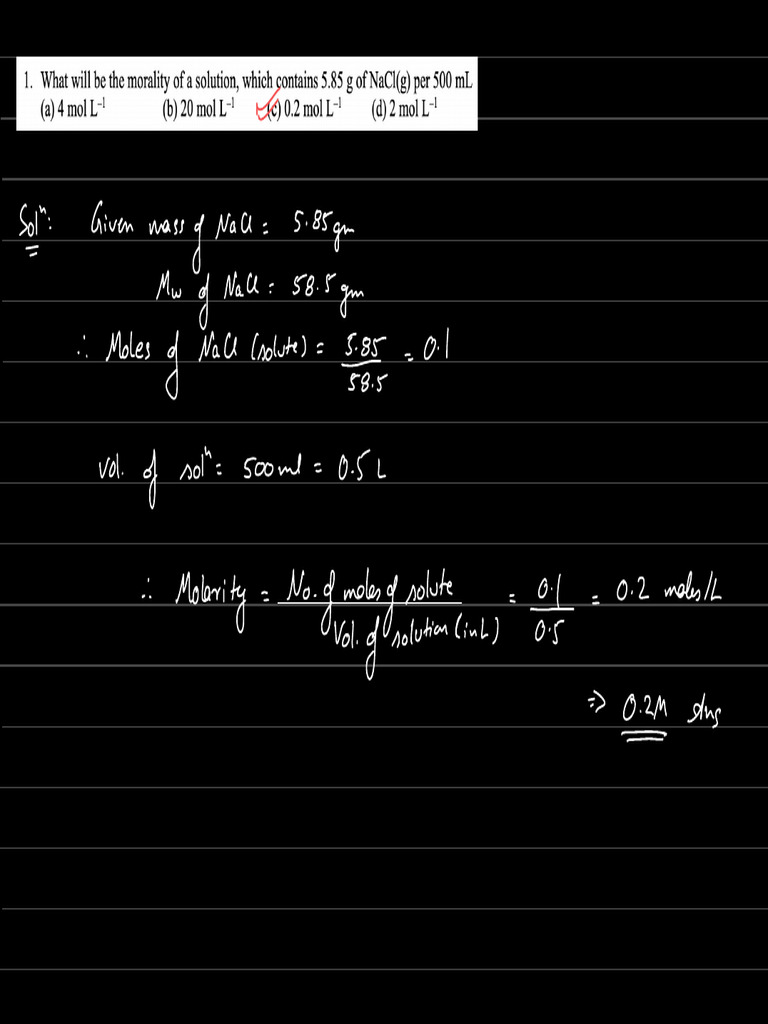 1. What will be the morality of a solution, which contains 5.85 g of NaCl(g) per 500 mL
(a) 4 mol L⁻¹ (b) 20 mol L⁻¹ (c) 0.2 mol L⁻¹ (d) 2 mol L⁻¹
Solⁿ: Given mass of NaCl = 5.85 gm
Mw of NaCl = 58.5 gm
∴ Moles of NaCl (solute) = 5.85 / 58.5 = 0.1
Vol. of solⁿ = 500 ml = 0.5 L
∴ Molarity = No. of moles of solute / Vol. of solution (in L) = 0.1 / 0.5 = 0.2 moles/L
⇒ 0.2M Ans